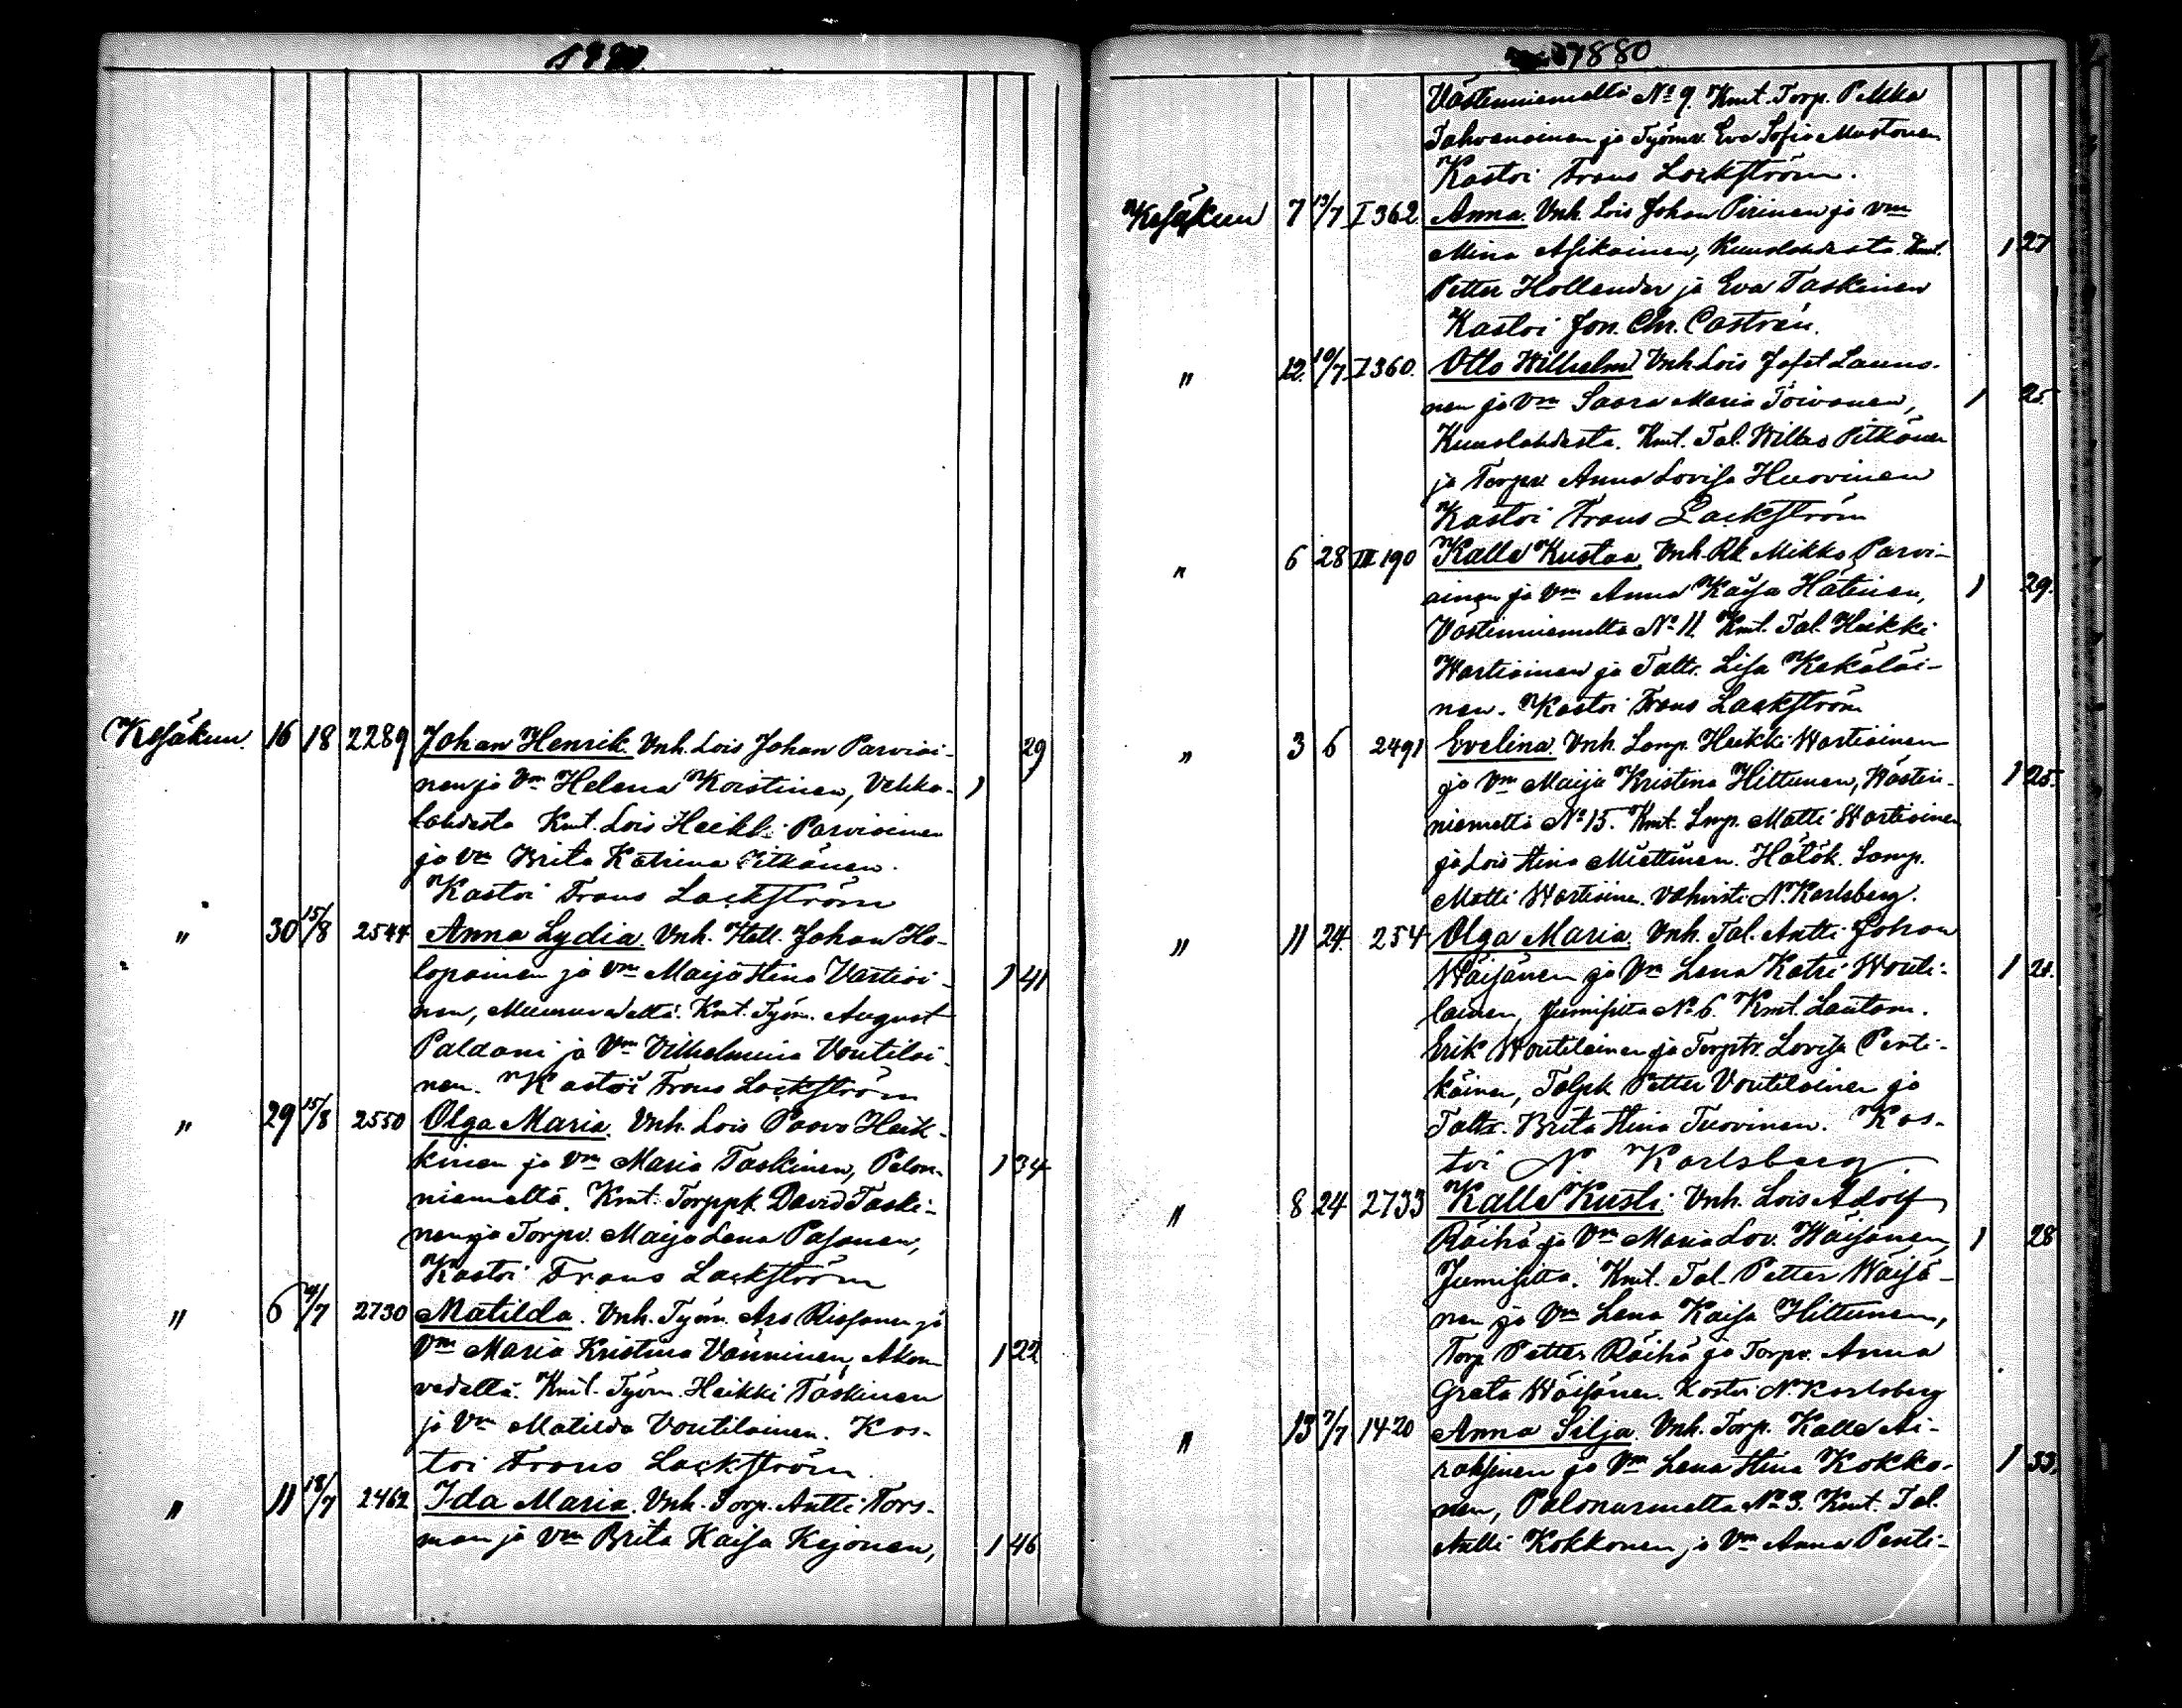 1880
Kesäkuu. 16 18 2289 Johan Henrik. Vnh. Lois Johan Parviai- 29
nen ja Vm Helena Koistinen, Vehka- 1
lahdesta Kmt. Lois Heikki Parviainen
ja Vm Brita Katrina Pitkänen.
Kastoi Frans Lackström
" 30 15/8 2544 Anna Lydia. Vnh. Hall. Johan Ho-
lopainen ja Vm Maija Stina Vartiai- 1 41
nen, Muuruvedeltä. Kmt. Työm. August
Paldani ja Vm Vilhelmina Voutilai-
nen. Kastoi Frans Lackström
" 29 15/8 2550 Olga Maria. Vnh. Lois Paavo Heik-
kinen ja Vm Maria Taskinen, Pelon- 1 34
niemeltä. Kmt. Torppk. David Taski-
nen ja Torpv. Maija Lena Pasanen,
Kastoi Frans Lackström
" 6 4/7 2730 Matilda. Vnh. Työm. Aro Rissanen ja
Vm Maria Kristina Vänninen, Akon- 1 22
vedeltä. Kmt. Työm. Heikki Taskinen
ja Vm Matilda Voutilainen. Kas-
toi Frans Lackström.
" 11 18/7 2462 Ida Maria. Vnh. Torp. Antti Fors-
man ja Vm Brita Kaisa Kejonen, 1 46
1880
Västinniemeltä No 9. Kmt. Torp. Pekka
Tahvanainen ja Työmv. Eva Sofia Mustonen
Kastoi Frans Lackström.
Kesäkuu 7 13/7 I 362 Anna. Vnh. Lois Johan Pirinen ja Vm
Mina Asikainen, Kuuslahdesta. Kmt. 1 27
Petter Hollender ja Eva Taskinen
Kastoi Jon. Chr. Castrén.
" 12 10/7 I 360. Otto Wilhelm. Vnh. Lois Jafet Launo-
nen ja Vm Saara Maria Toivanen, 1 25.
Kuuslahdesta. Kmt. Tal. Wilho Pitkänen
ja Torpv. Anna Lovisa Huovinen
Kastoi Frans Lackström
" 6 28 III 190 Kalle Kustaa. Vnh. Rk. Mikko Parvi-
ainen ja Vm Anna Kaisa Hätinen, 1 29.
Västinniemeltä No 11. Kmt. Tal. Heikki
Wartiainen ja Taltr. Lisa Kekäläi-
nen. Kastoi Frans Lackström
" 3 6 2491 Evelina. Vnh. Lamp. Heikki Wartiainen
ja Vm Maija Kristina Hiltunen, Wästin- 1 25.
niemeltä No 15. Kmt. Lmp. Matti Wartiainen
ja Lois Stina Miettinen. Hätäk. Lamp.
Matti Wartiainen. Vahvisti N. Karlsberg.
" 11 24. 254 Olga Maria. Vnh. Tal. Antti Johan
Wäisänen ja Vm Lena Katri Wouti- 1 21.
lainen, Juminitta No 6. Kmt. Lautam.
Erik Woutilainen ja Torptr. Lovisa Penti-
käinen, Talpk. Petter Voutilainen ja
Taltr. Brita Stina Tuovinen. Kas-
toi N. Karlsberg.
" 8 24 2733 Kalle Kusti. Vnh. Lois Adolf
Räihä ja Vm Maria Lov. Wäisänen, 1 28
Juminitta. Kmt. Tal. Petter Wäisä-
nen ja Vm Lena Kaisa Hiltunen,
Torp. Petter Räihä ja Torpv. Anna
Greta Wäisänen. Kastoi N. Karlsberg
" 13 7/7 1420 Anna Silja. Vnh. Torp. Kalle Ai-
raksinen ja Vm Lena Stina Kokko- 1 33.
nen, Palonurmelta No 3. Kmt. Tal.
Antti Kokkonen ja Vm Anna Penti-